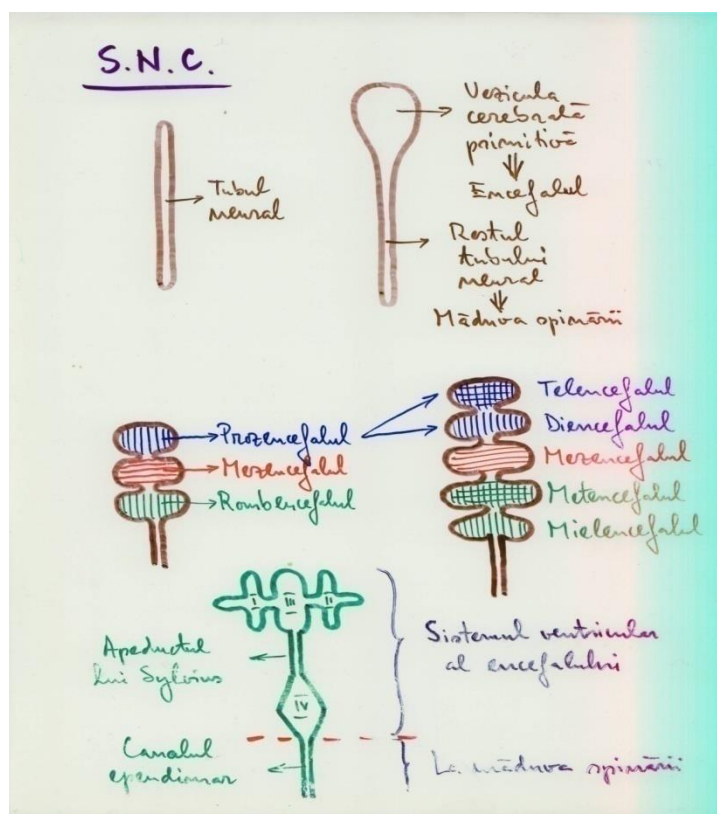 S.N.C.
Tubul
neural
Vezicula
cerebrală
primitivă
Encefalul
Restul
tubului
neural
Măduva spinării
Prozencefalul
Mezencefalul
Rombencefalul
Telencefalul
Diencefalul
Mezencefalul
Metencefalul
Mielencefalul
I III II
IV
Apeductul
lui Sylvius
Canalul
ependimar
Sistemul ventricular
al encefalului
La măduva spinării